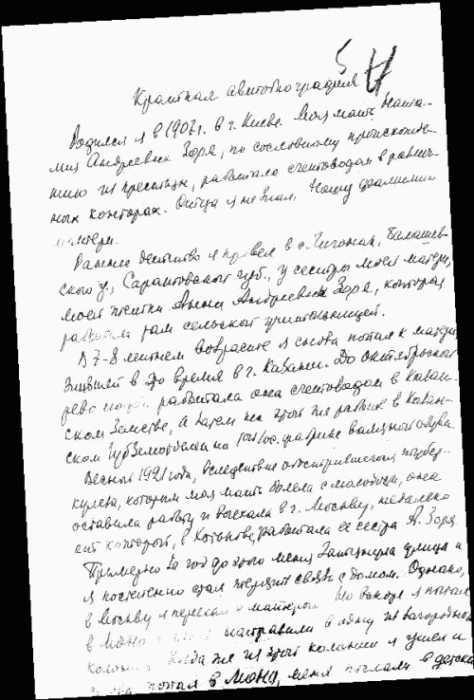 5
Краткая автобиография
Родился я в 1907 г. в г. Киеве. Моя мать, Ната-
лия Андреевна Зоря, по сословному происхожде-
нию из крестьян, работала счетоводом в различ-
ных конторах. Отца я не знал. Ношу фамилию
матери.
Раннее детство я провел в с. Балашов-
ского у., Саратовской губ., у сестры моей матери,
моей тетки Анны Андреевны Зоря, которая
работала там сельской учительницей.
В 7-8 летнем возрасте я снова попал к матери
жившей в то время в г. Казани. До октябрьской
революции работала она счетоводом в Казан-
ском Земстве, а затем на этой же работе в Казан-
ском Губземотделе и на фабрике валяной обуви.
Весной 1921 года, вследствие обострившегося тубер-
кулеза, которым моя мать болела с молодости, она
оставила работу и выехала в г. Москву, недалеко
от которой, в работала ее сестра А. Зоря.
Примерно за год до этого меня затянула улица и
я постепенно стал терять связь с домом. Однако,
в Москву я переехал с матерью. На вокзале я попал
в Моно направили в одну из загородных
колоний. Когда же из этой колонии я ушел и
снова попал в Моно, меня послали в детский